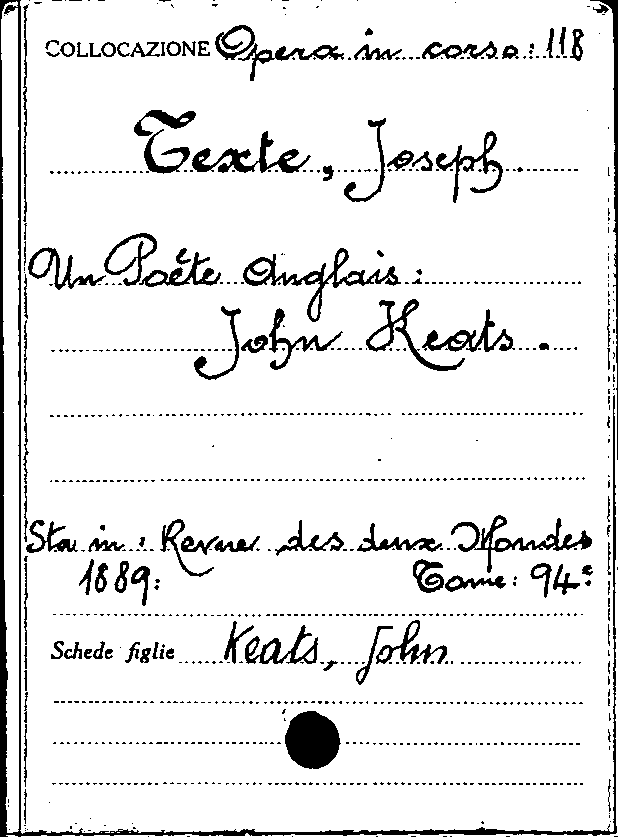 COLLOCAZIONE Opera in corso: 118
Texte, Joseph.
Un Poëte Anglais:
John Keats.
Sta in: Revue des deux Mondes
1889: Tome: 94e:
Schede figlie Keats, John